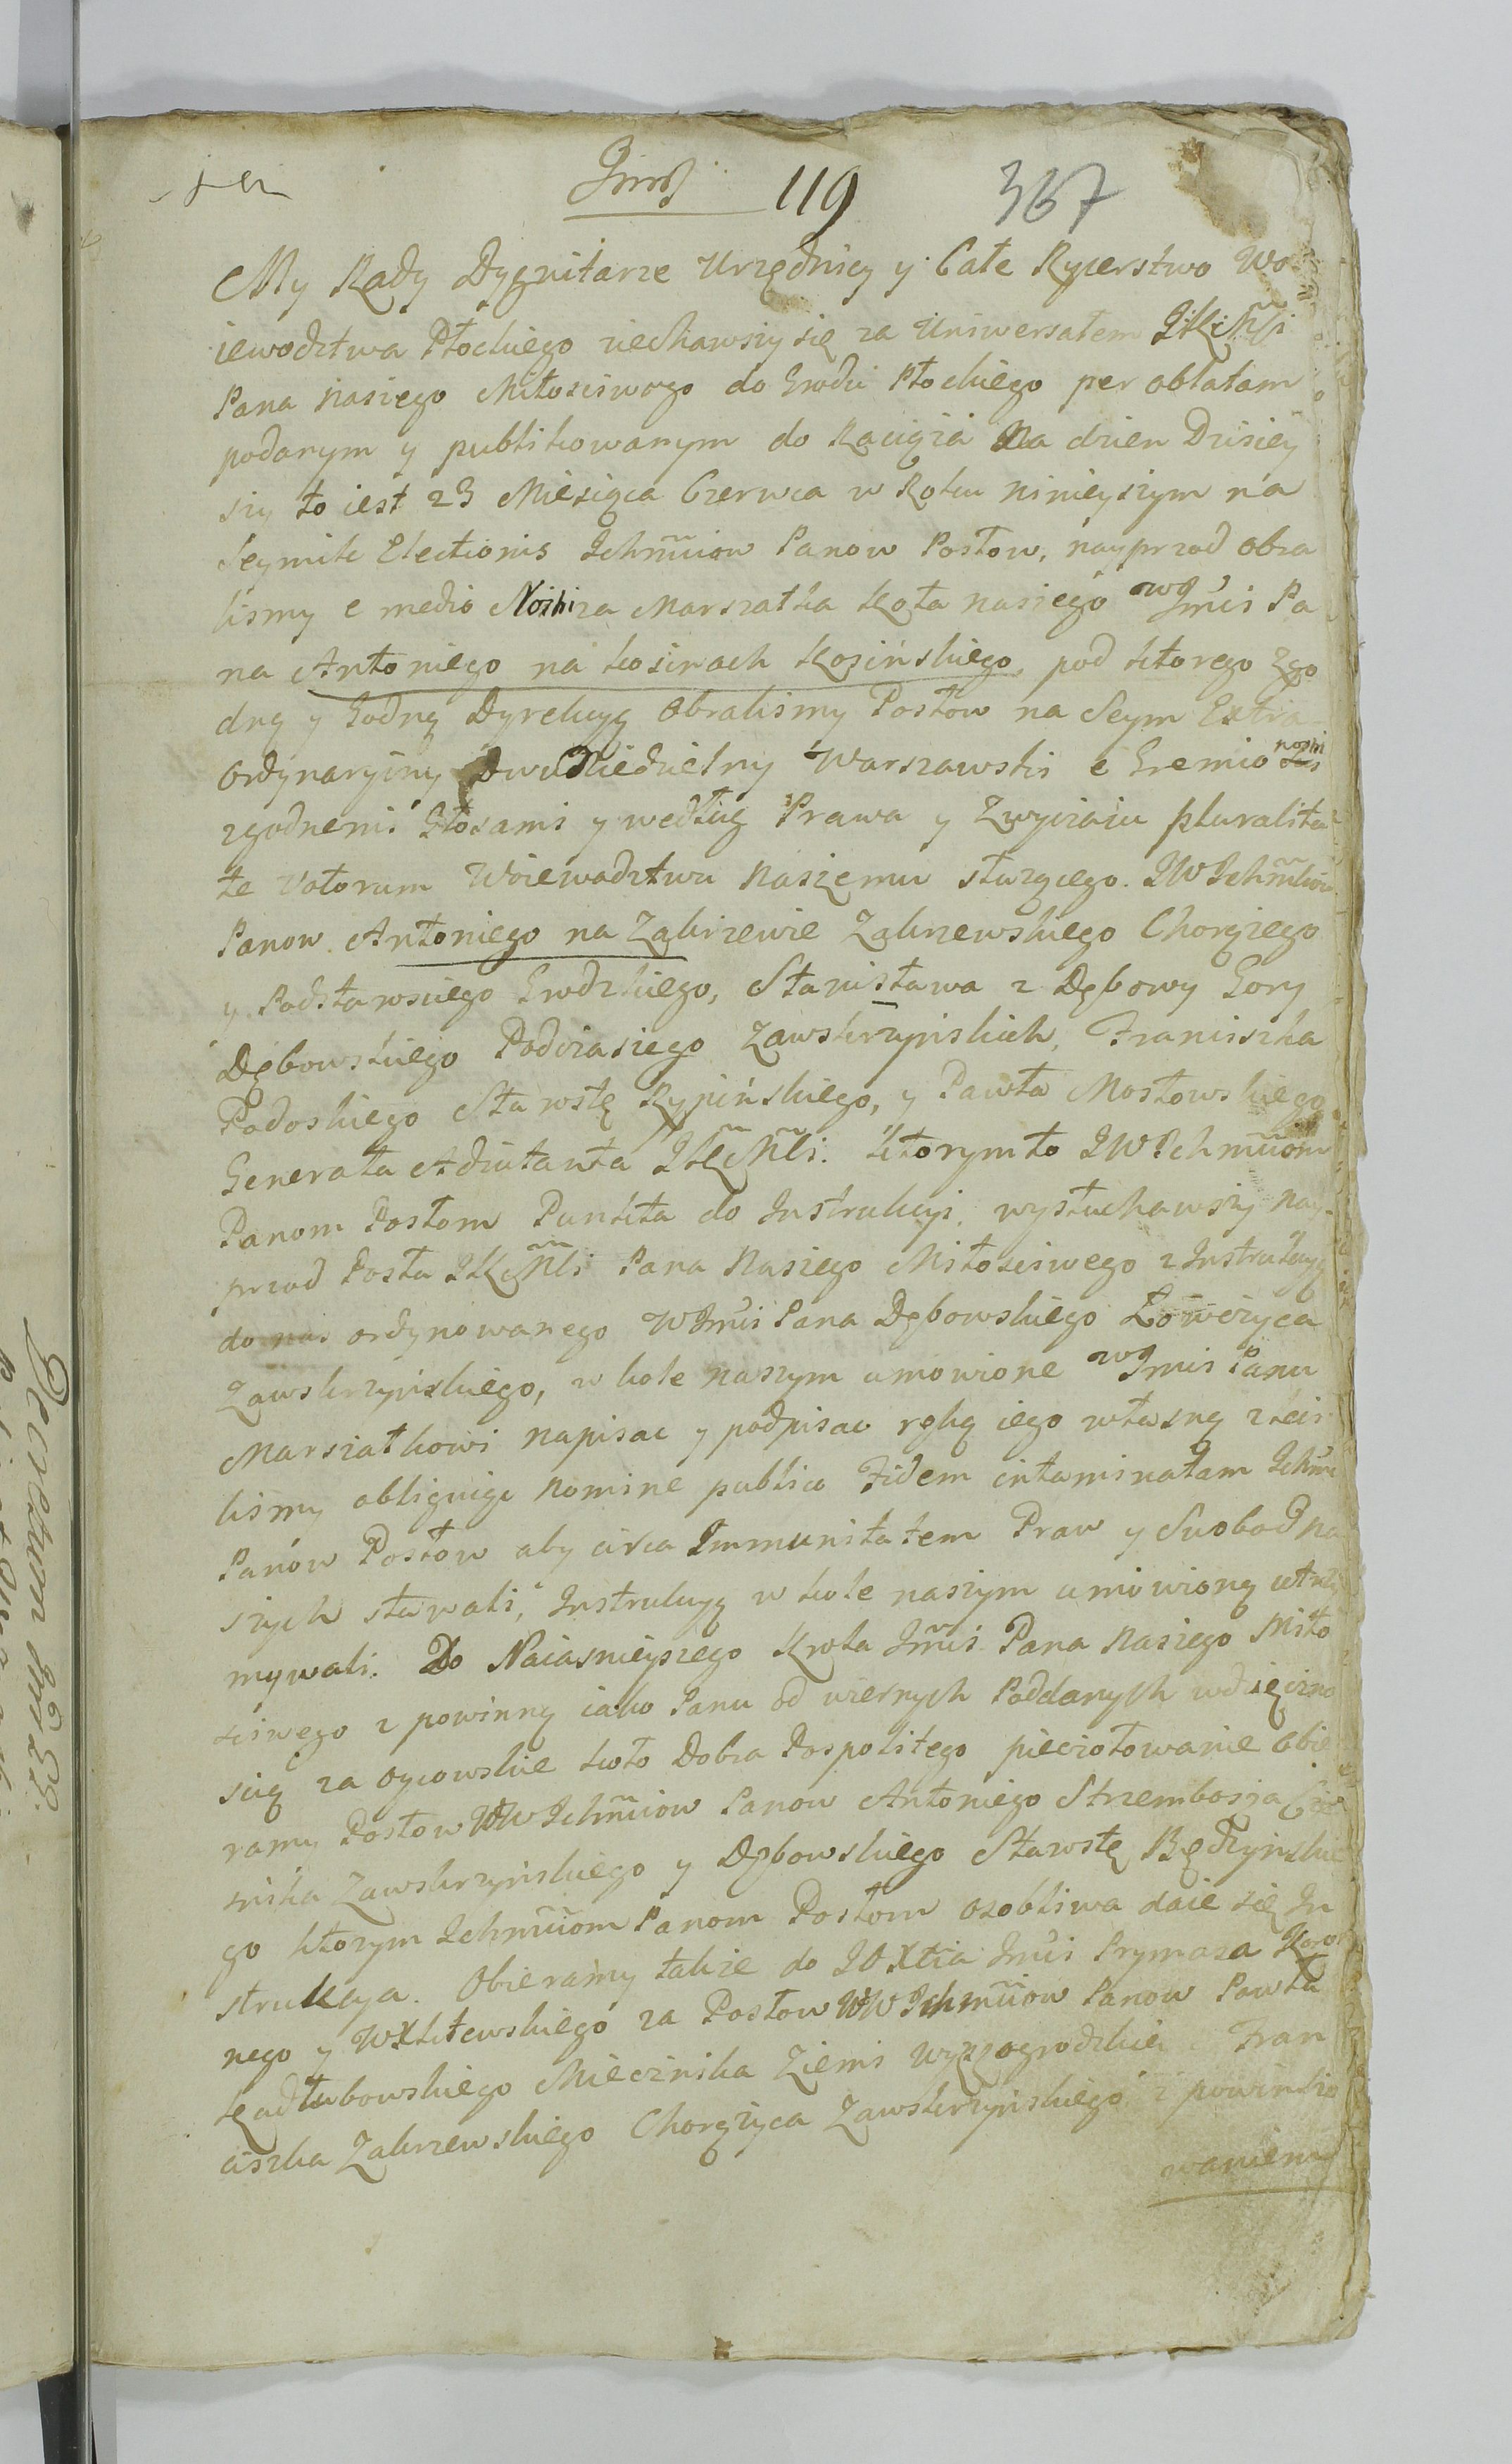 119 367
My Rady Dygnitarze Urzędnicy y Całe Rycerstwo Wo
iewodztwa Płockiego ziechawszy się za Uniwersałem JKMci
Pana Naszego Miłosciwego do Grodu Płockiego per oblatam
podanym y publikowanym do Raciąża Na dzien Dzisiey
szy to iest 23 Miesiąca Czerwca w Roku ninieyszym na
Seymik Electionis Ichmciow Panow Posłow, nayprzod obra
lismy e medio Nostri za Marszałka Koła naszego WJmci Pa
na Antoniego na Kosinach Kosińskiego, pod ktorego zgo
dną y Godną Dyrekcyą Obralismy Posłow na Seym Extra
ordynaryiny DwuNiedzielny Warszawski e Gremio nostri
zgodnemi Głosami y według Prawa y Zwyczaiu pluralita
te votorum Woiewodztwu Naszemu słuzącego. JW Ichmciow
Panow Antoniego na Zakrzewie Zakrzewskiego Chorążego
y Podstarosciego Grodzkiego, Stanisława z Dębowy Gory
Dębowskiego Podczaszego Zawskrzyńskich, Franciszka
Podoskiego Starostę Rypińskiego, y Pawła Mostowskiego
Generała Adiutanta JKMci. ktorymto JW Ichmciom
Panom Posłom Punkta do Instrukcyi, wysłuchawszy nay
przod Posła JKMci Pana Naszego Miłosciwego z Instrukcyą
do nas ordynowanego WJmci Pana Dębowskiego Łowczyca
Zawskrzyńskiego, w kole naszym umowione WJmci Panu
Marszałkowi napisac y podpisac ręką iego własną zleci
lismy obliguiąc nomine publico Fidem intaminatam Ichm
Panow Posłow aby circa Immunitatem Praw y Swobod na
szych stawali, Instrukcyą w kole naszym umowioną utrzy
mywali. Do Naiasnieyszego Krola Jmci Pana Naszego Miło
sciwego z powinną iako Panu od wiernych Poddanych wdzięczno
scią za oycowskie koło Dobra Pospolitego pieczołowanie obie
ramy Posłow WW Ichmciow Panow Antoniego Strzembosza Cze
snika Zawskrzyńskiego y Dębowskiego Starostę Będzyńskie
go ktorym Ichmciom Panom Posłom osobliwa daie się In
strukcya. Obieramy takze do JO Xcia Jmci Prymasa Koro
nego y WXLitewskiego za Posłow WW Ichmciow Panow Pawła
Kadłubowskiego Miecznika Ziemi Wyszogrodzkiey Fran
ciszka Zakrzewskiego Chorążyca Zawskrzyńskiego z powinszo
waniem